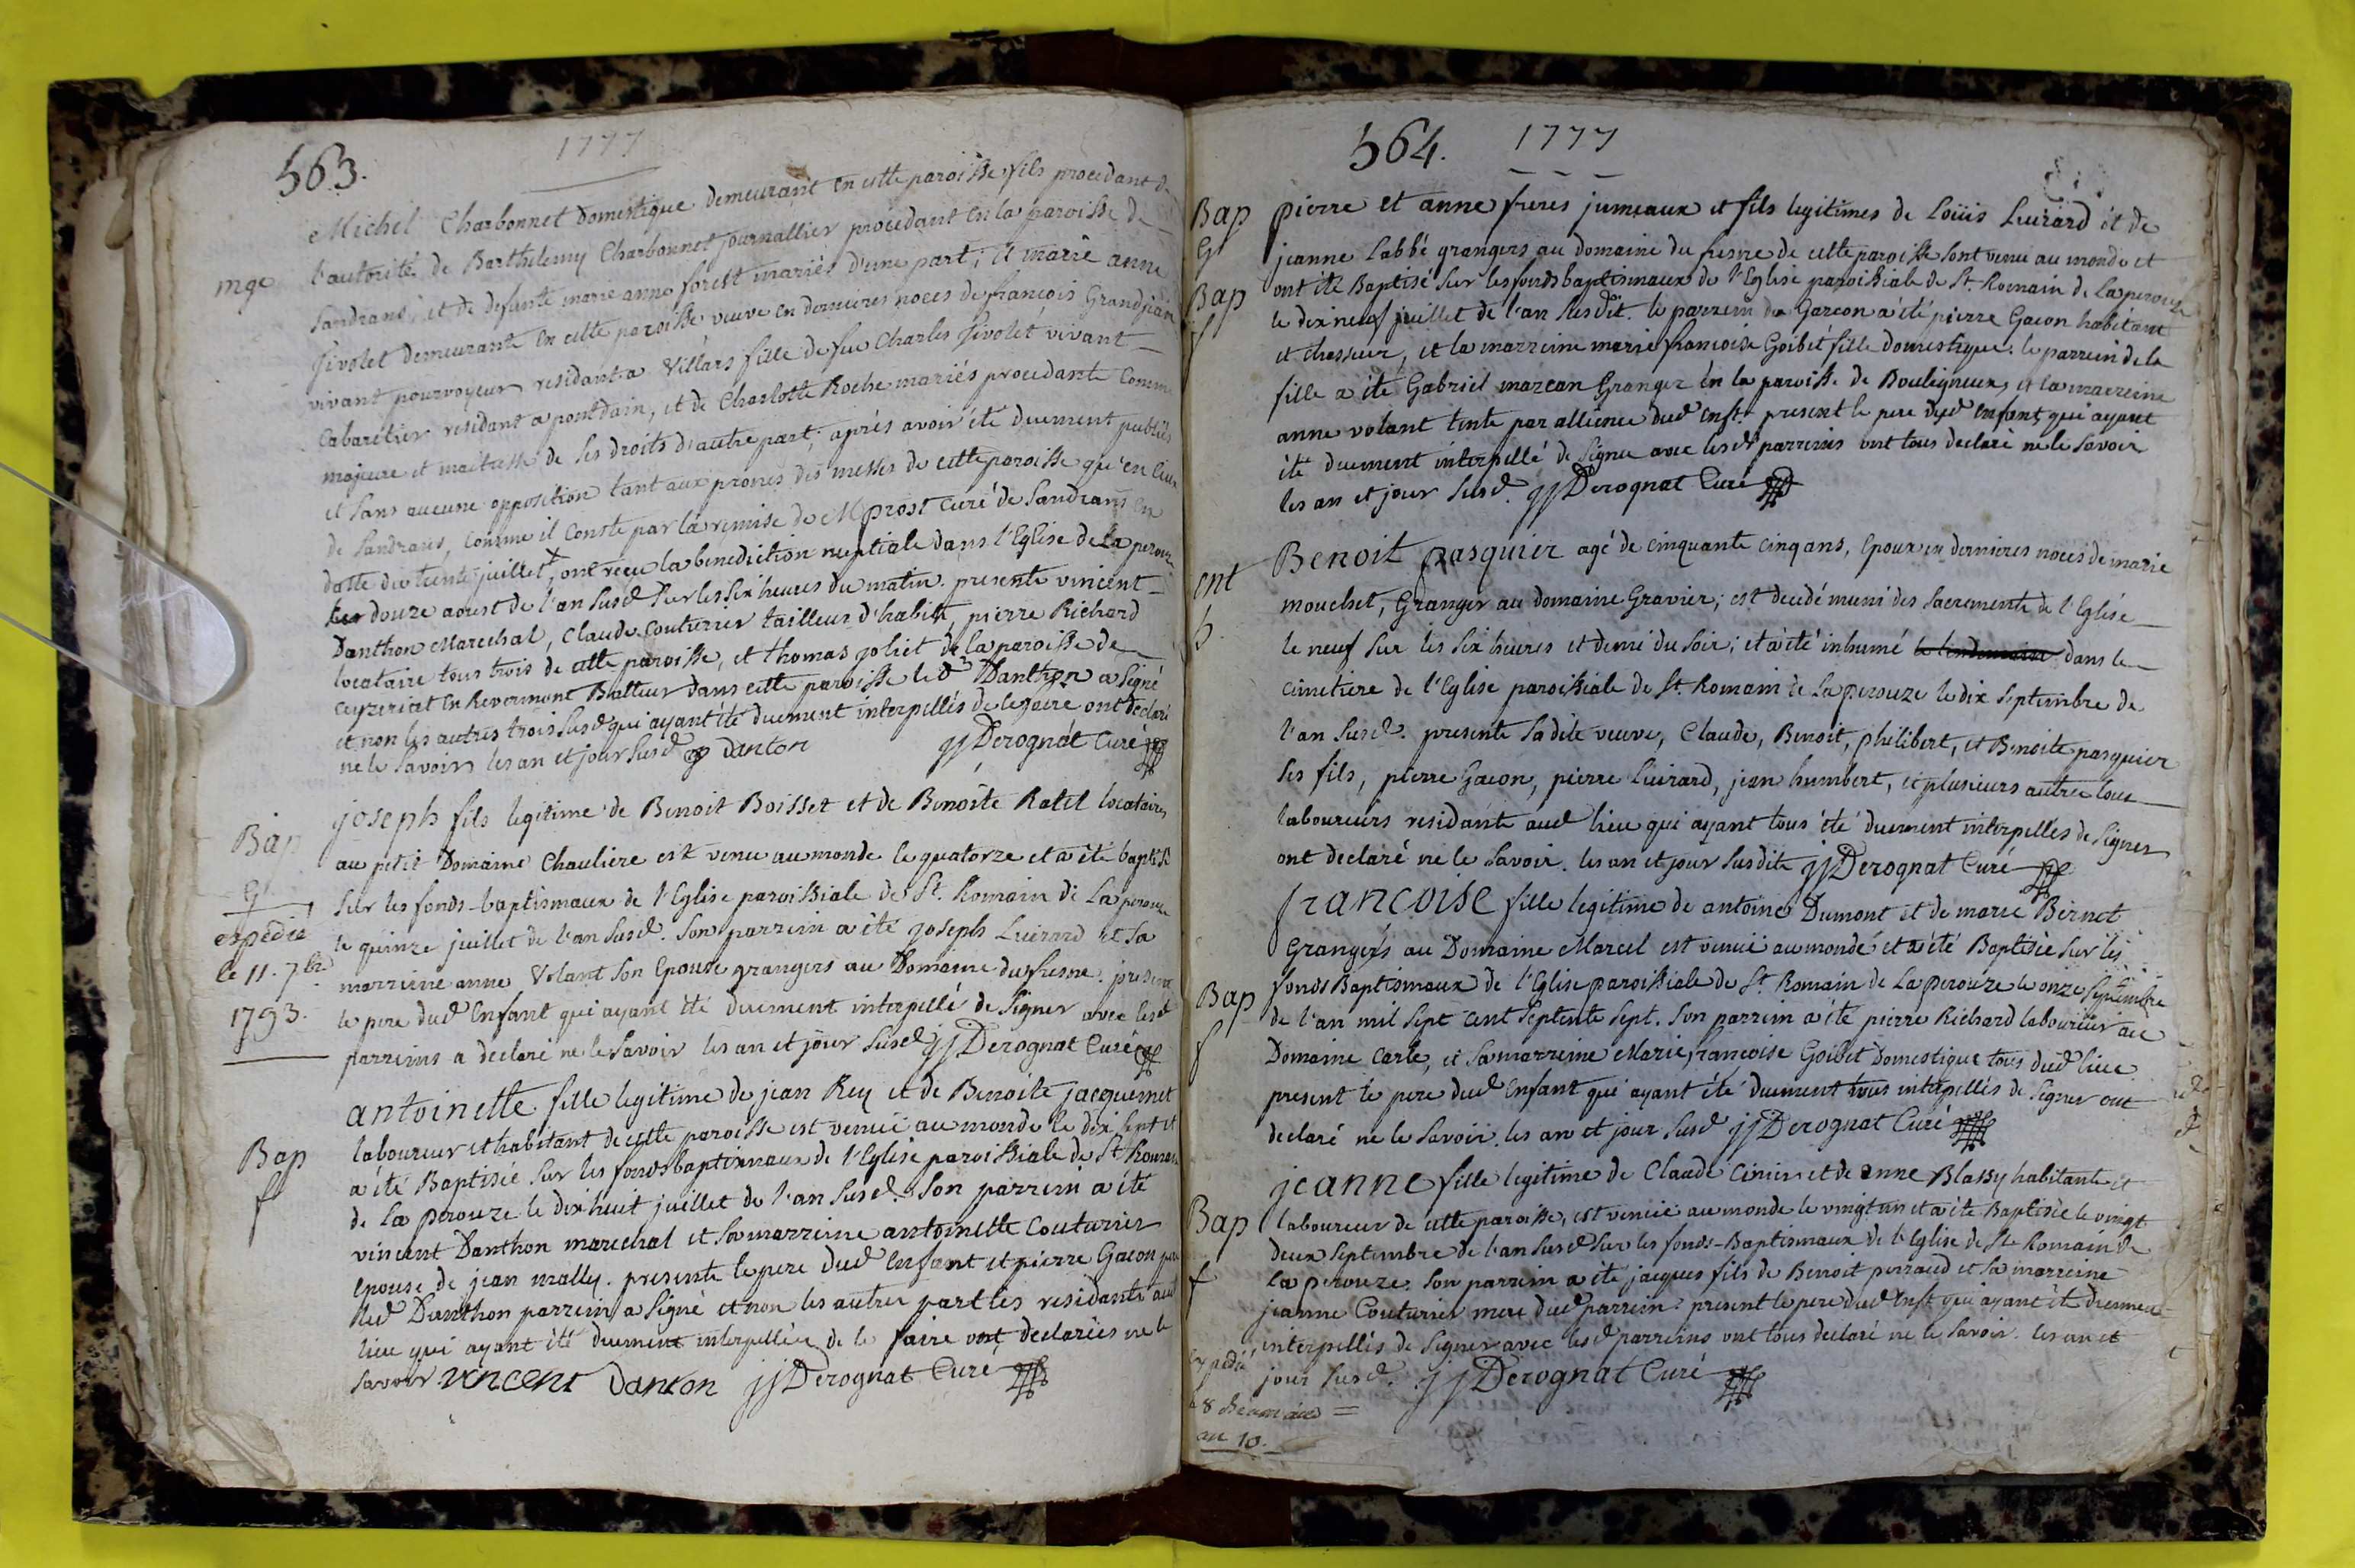 563.
1777
mge
Michel Charbonnet Domestique demeurant en cette paroisse fils procedant de
l'autorité de Barthelemy Charbonnet journallier procedant en la paroisse de
Sandrans, et de defunte marie anne forest mariés d'une part; et marie anne
Jivolet demeurante en cette paroisse veuve en dernieres noces de francois Grandjean
vivant pourvoyeur residant a Villars fille de feu Charles Jivolet vivant
Cabaretier residant a pontdain, et de Charlotte Roche mariés procedante Comme
majeure et maitresse de ses droits d'autre part; aprés avoir été duement publiés
et sans aucune opposition tant aux prones des messes de cette paroisse qu'en celle
de Sandrans, comme il conste par la remise de M prost curé de Sandrans en
datte du trente juillet, ont reçu la benediction nuptiale dans l'Eglise de La perouze
les douze aoust de l'an susd sur les six heures du matin. presents vincent
Danthon Marechal, Claude Couturier tailleur d'habits, pierre Richard
locataire tous trois de cette paroisse, et thomas joliet de la paroisse de
ceyzeriat en Revermont Batteur dans cette paroisse le d Danthon a signé
et non les autres trois susd qui ayant été duement interpellés de le faire ont declaré
ne le savoir les an et jour susd danton jj Derognat Curé
Bap
G
expedié
le 11. 7bre
1793.
joseph fils legitime de Benoit Boisset et de Benoite Ratel locataires
au petit Domaine Chauliere est venu au monde le quatorze et a été baptisé
sur les fonds-baptismaux de l'Eglise paroissiale de St. Romain de La perouze
le quinze juillet de l'an susd. Son parrein a été joseph Luirard et sa
marreine anne Volant son Epouse grangers au Domaine du fresne. present
le pere dud Enfant qui ayant été duement interpellé de signer avec lesd
parreins a declaré ne le savoir les an et jour susd jj Derognat Curé
Bap
f
antoinette fille legitime de jean Rey et de Benoite jacquemet
laboureur et habitant de cette paroisse est venüe au monde le dix sept et
a été Baptisée sur les fonds baptismaux de l'Eglise paroissiale de St Romain
de La perouze le dix huit juillet de l'an susd. Son parrein a été
vincent Danthon marechal et sa marreine antoinette Couturier
epouse de jean mally. presents le pere dud enfant et pierre Gacon
led Danthon parrein a signé et non les autres parties residants aud
lieu qui ayant été duement interpellées de le faire ont declariés ne le
savoir vincent danton jj Derognat Curé
564.
1777
Bap
G
Bap
f
pierre et anne freres jumeaux et fils legitimes de Loüis Luirard et de
jeanne Labbé grangers au domaine du fresne de cette paroisse sont venu au monde et
ont été Baptisé sur les fonds baptismaux de l'Eglise paroissiale de St. Romain de La perouze
le dix neuf juillet de l'an susdit. le parrein du Garcon a été pierre Gacon habitant
et chasseur, et la marreine marie francoise Goibet fille domestique. le parrein de la
fille a été Gabriel marcan Granger en la paroisse de Bouligneux, et la marreine
anne volant tente par allience dud enft. present le pere dud enfant, qui ayant
été duement interpellé de signer avec lesd parreins ont tous declaré ne le savoir
les an et jour susd. jj Derognat Curé
ent
h.
Benoit pasquier agé de cinquante cinq ans, epoux en dernieres noces de marie
mouchet, Granger au domaine Gravier; est decedé muni des sacrements de l'Eglise
le neuf sur les six heures et demi du soir; et a été inhumé le lendemain dans le
cimetiere de l'Eglise paroissiale de St. Romain de La perouze le dix septembre de
l'an susd. presents sadite veuve, Claude, Benoit, philibert, et Benoite pasquier
ses fils, pierre Gacon, pierre Luirard, jean humbert, et plusieurs autres tous
laboureurs residants aud lieu qui ayant tous été duement interpellés de signer
ont declaré ne le savoir. les an et jour susdits jj Derognat Curé
Bap
f
francoise fille legitime de antoine Dumont et de marie Bernet
Grangers au Domaine Marcel est venüe au monde et a été Baptisée sur les
fonds Baptismaux de l'Eglise paroissiale de St. Romain de La perouze le onze septembre
de l'an mil sept cent septente sept. Son parrein a été pierre Richard laboureur au
Domaine Carle, et sa marreine Marie francoise Goibet Domestique tous dud lieu
present le pere dud enfant qui ayant été duement tous interpellés de signer ont
declaré ne le savoir. les an et jour susd jj Derognat Curé
Bap
f
expedié
8
an 10.
jeanne fille legitime de Claude Cinier et de anne Blassy habitants et
laboureur de cette paroisse, est venüe au monde le vingt un et a été Baptisée le vingt
deux septembre de l'an susd sur les fonds-Baptismaux de l'Eglise de St Romain de
La perouze. Son parrein a été jacques fils de Benoit perraud et sa marreine
jeanne Couturier mere dud parrein. present le pere dud Enft qui ayant été duement
interpellés de signer avec lesd parreins ont tous declaré ne le savoir. les an et
jour susd. jj Derognat Curé